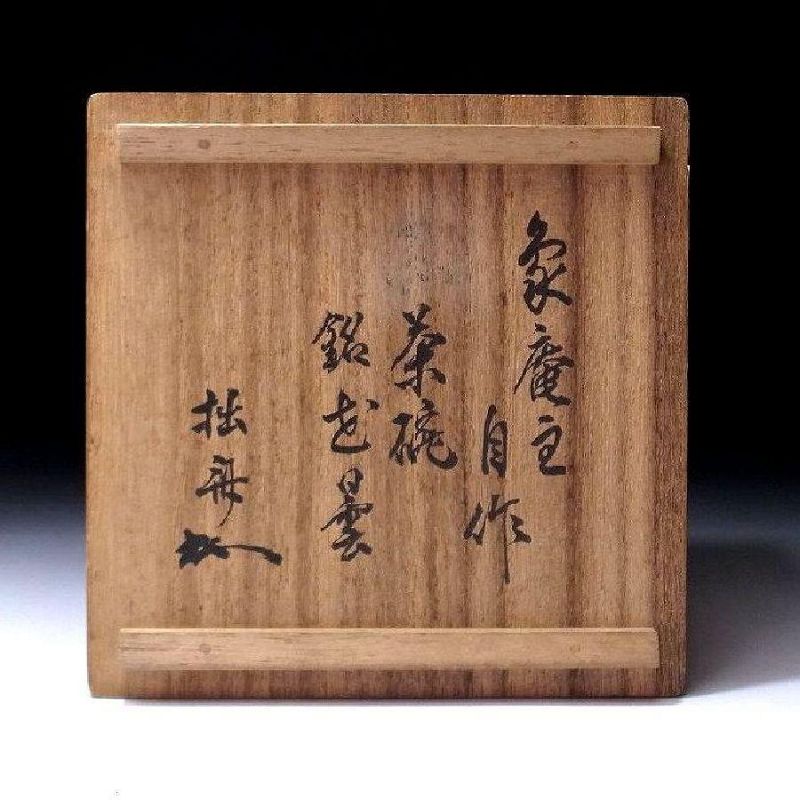 象庵主
自作
茶碗
銘花曇
拙斎